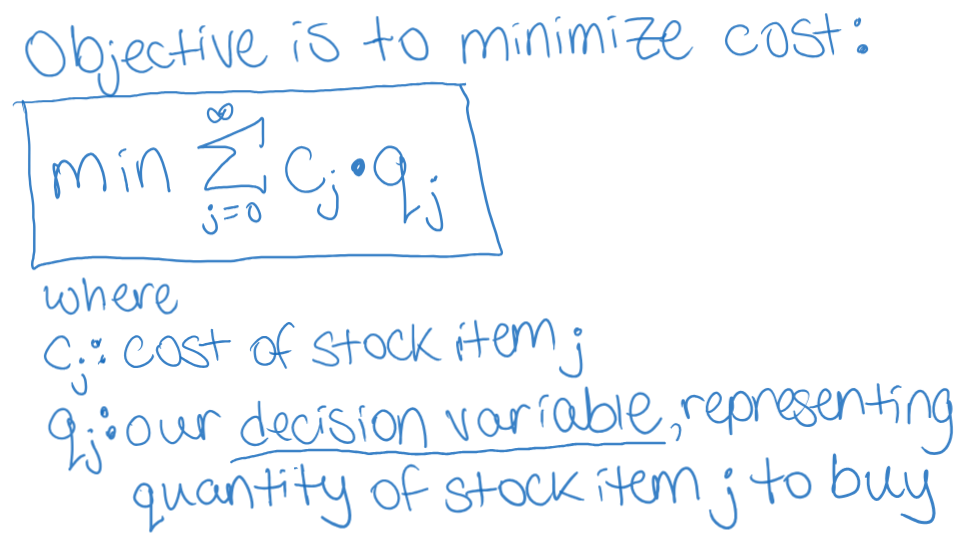 Objective is to minimize cost:
min ∑_{j=0}^{∞} c_j • q_j
where
c_j: cost of stock item j
q_j: our decision variable, representing
quantity of stock item j to buy